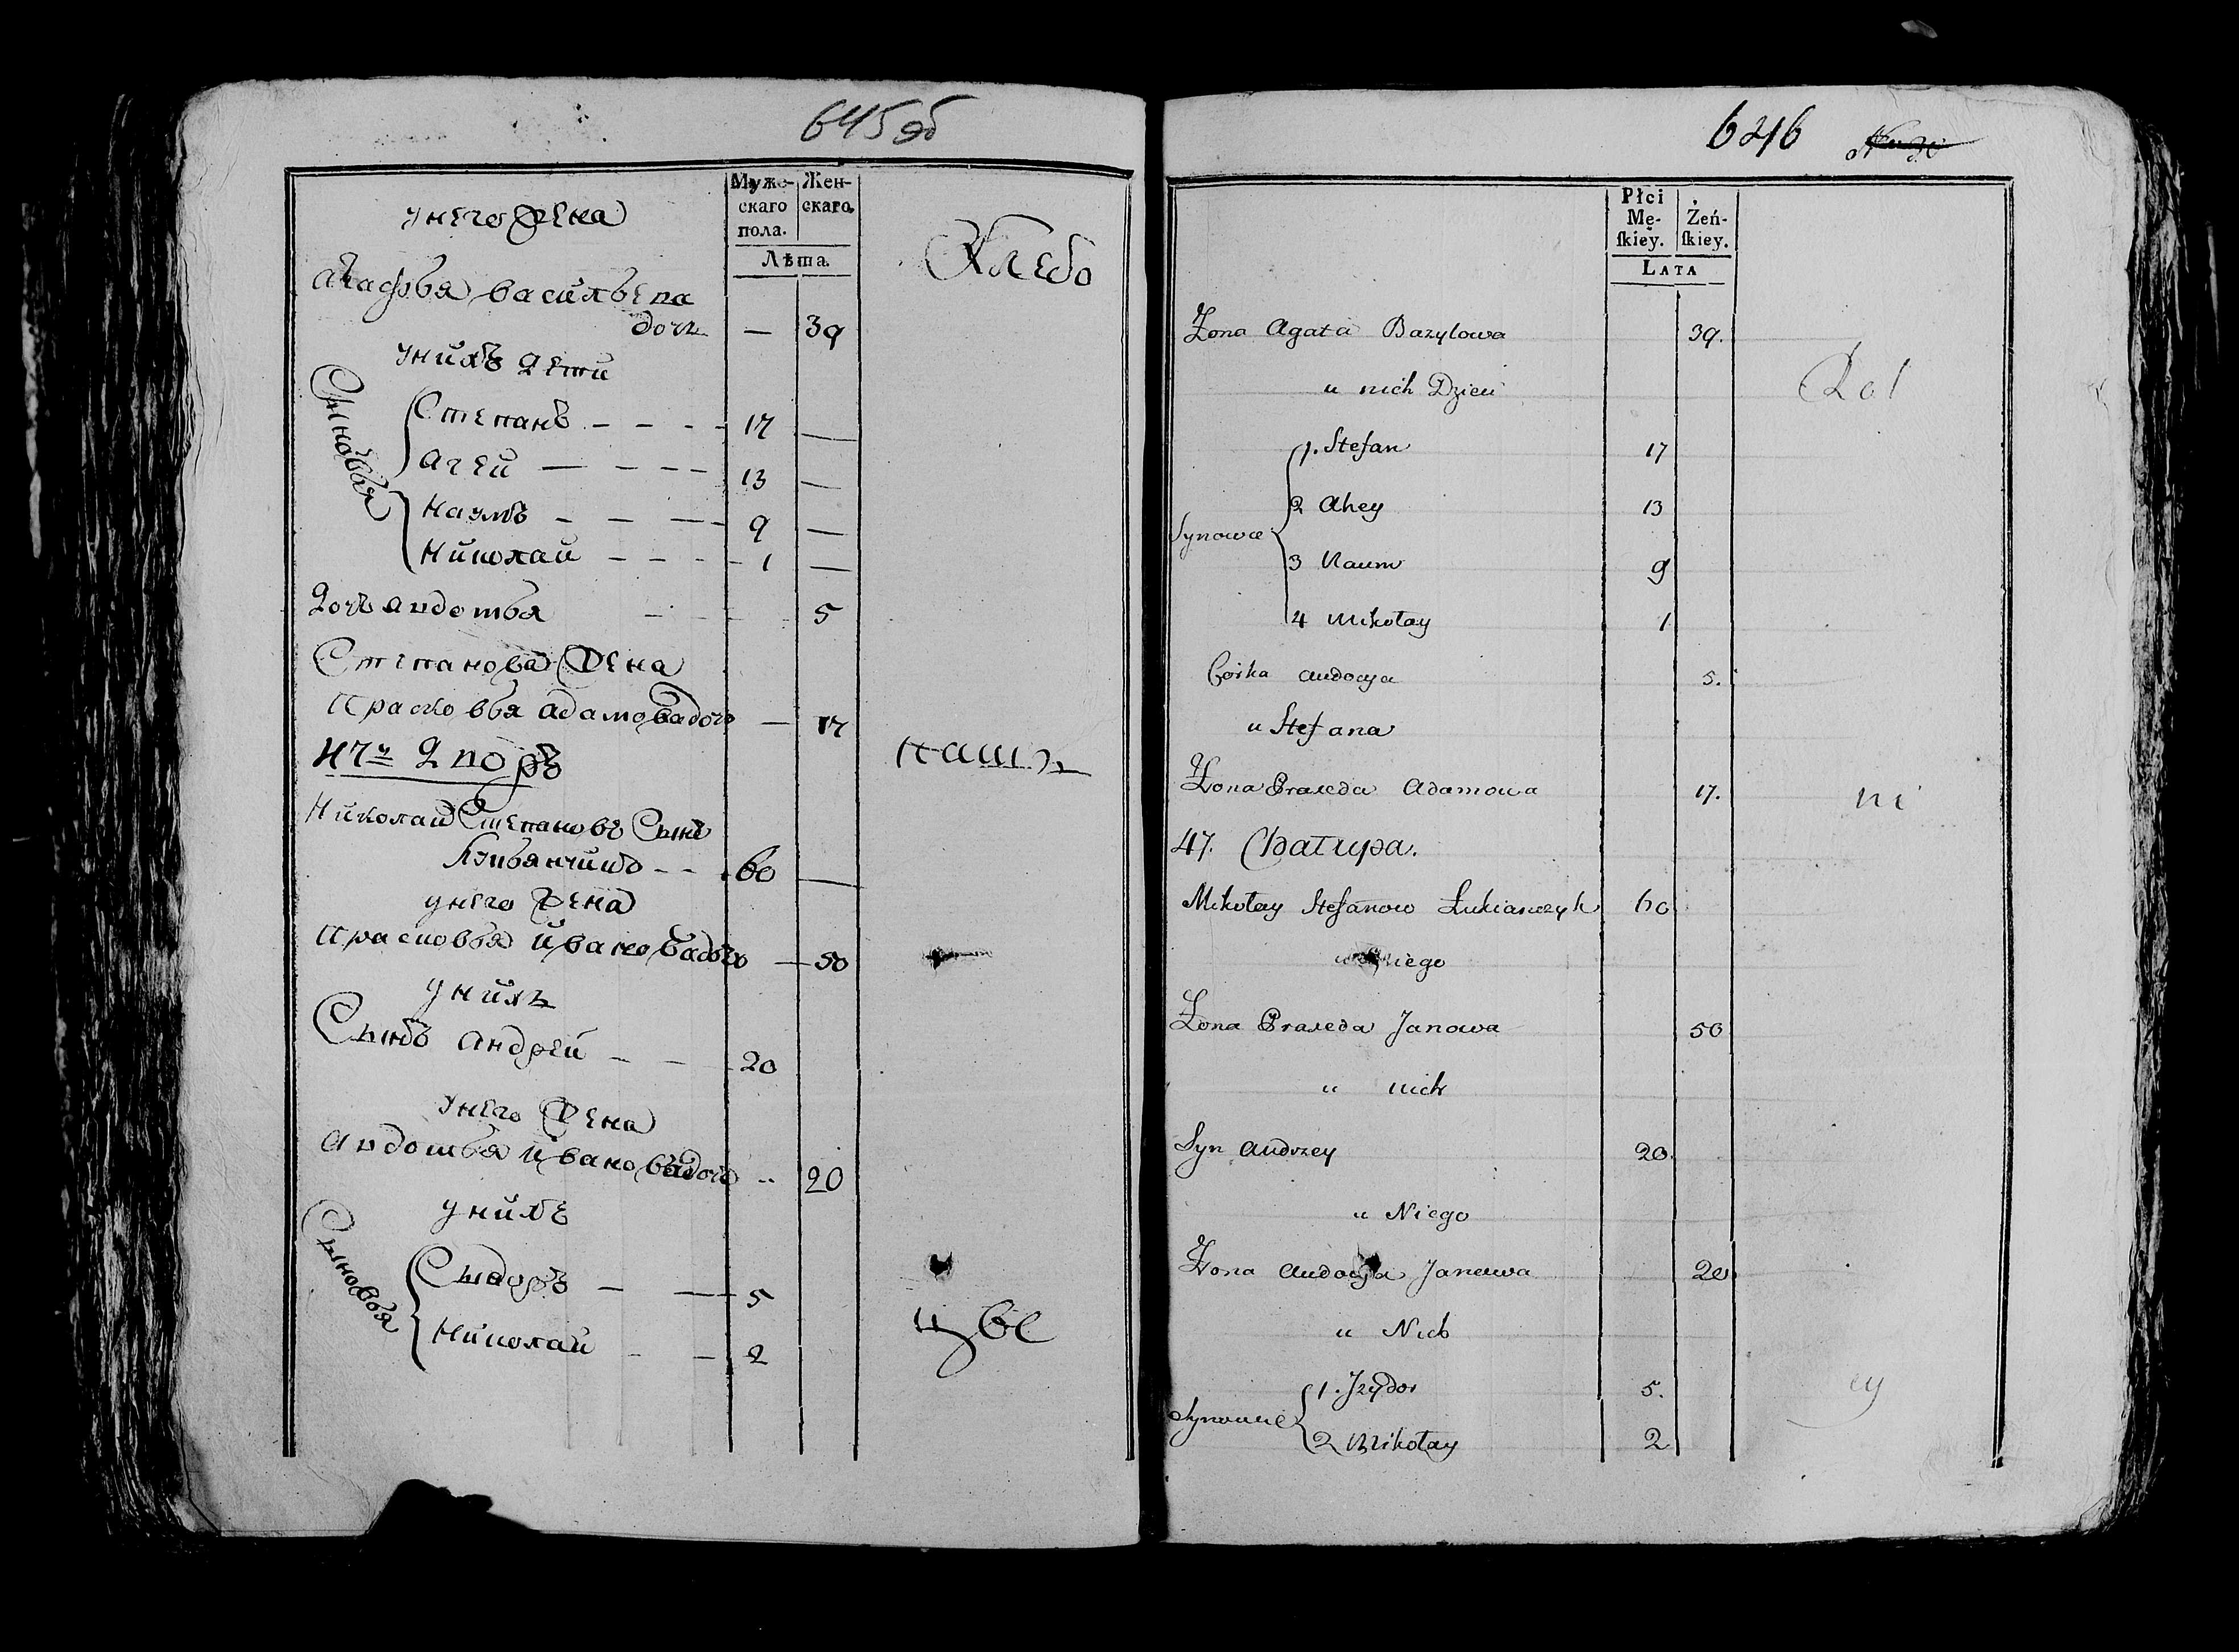 645 об
Муже-
скаго
пола.
Жен-
скаго.
Лѣта
унего жена
Агафья васильева
дочь — 39
унихъ дети
Сыновья
Степанъ - - - - 17 —
Агей — - - - 13 —
Наумъ - - — - 9 —
Николай - - - - 1 —
дочь авдотья - - - 5
Степанова жена
Прасковья адамова дочь — 17
47й Дворъ
Николай Степановъ Сынъ
Лукьянчикъ - - 60 —
унего жена
Прасковья ивановa дочь — 50
унихъ
Сынъ андрей - - 20
унего жена
авдотья иванова дочь - 20
унихъ
Сыновья
Сыдоръ - — 5
Николай - - 2
Хлебо
паш
цве
646
Płci
Mę-
skiey.
Żeń-
skiey.
LATA
Żona Agata Bazylowa 39.
u nich Dzieci
Synowie
1. Stefan 17
2 Ahey 13
3 Naum 9
4 Mikołay 1
Córka Audocya 5.
u Stefana
Żona Praxeda Adamowa 17.
47. Chatupa.
Mikołay Stefanow Łukianczyk 60
u Niego
Żona Praxeda Janowa 50
u nich
Syn Andrzey 20.
u Niego
Żona Audocya Janowa 20
u Nich
Synowie
1. Jzydor 5.
2 Mikołay 2
Rol
ni
cy